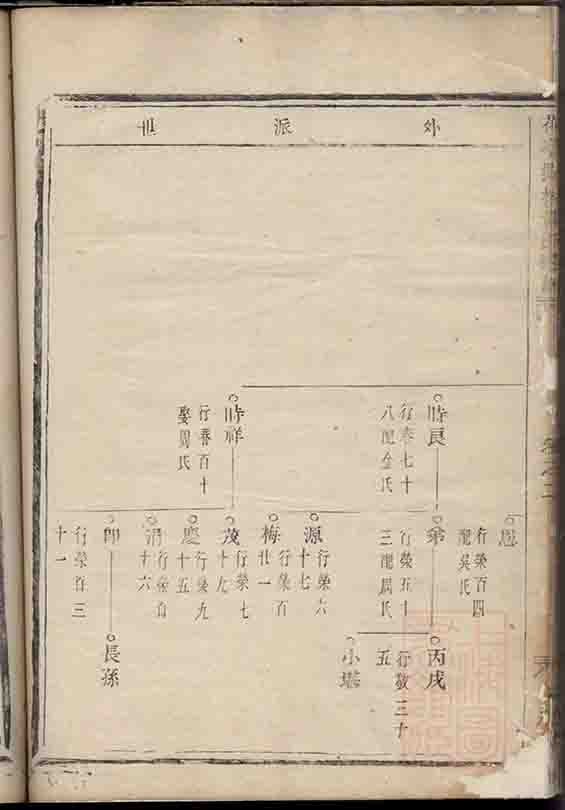 外派世
時良
行春七十
八配金氏
時祥
行春百十
娶周氏
恩
行榮百四
配吳氏
行榮五十
三配周氏
源
行榮六
十七
梅
行榮百
廿一
茂
行榮七
十九
慶
行榮九
十五
行榮百
十六
行榮百三
十一
丙戌
行敬三十
五
小
長孫